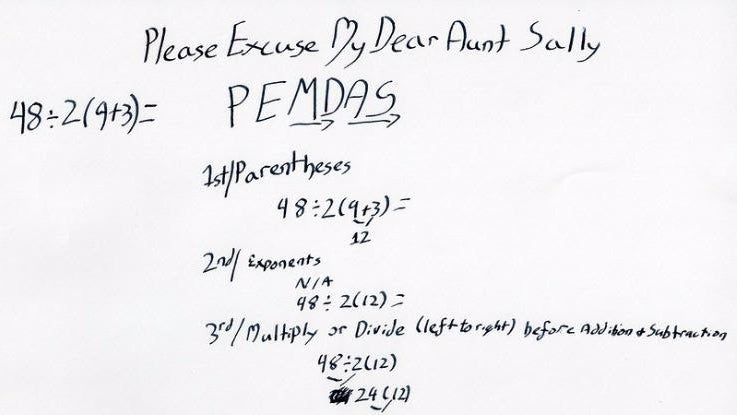 Please Excuse My Dear Aunt Sally
48÷2(9+3)= PEMDAS
1st/Parentheses
48÷2(9+3)=
12
2nd/ Exponents
N/A
48÷2(12)=
3rd/Multiply or Divide (left to right) before Addition & Subtraction
48÷2(12)
24(12)